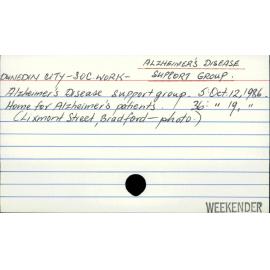 ALZHEIMER'S DISEASE
DUNEDIN CITY-SOC. WORK- SUPPORT GROUP.
Alzheimer's Disease support group. 5: Oct. 12, 1986.
Home for Alzheimer's patients. 36: " 19, "
(Lixmont Street, Bradford-photo.)
WEEKENDER